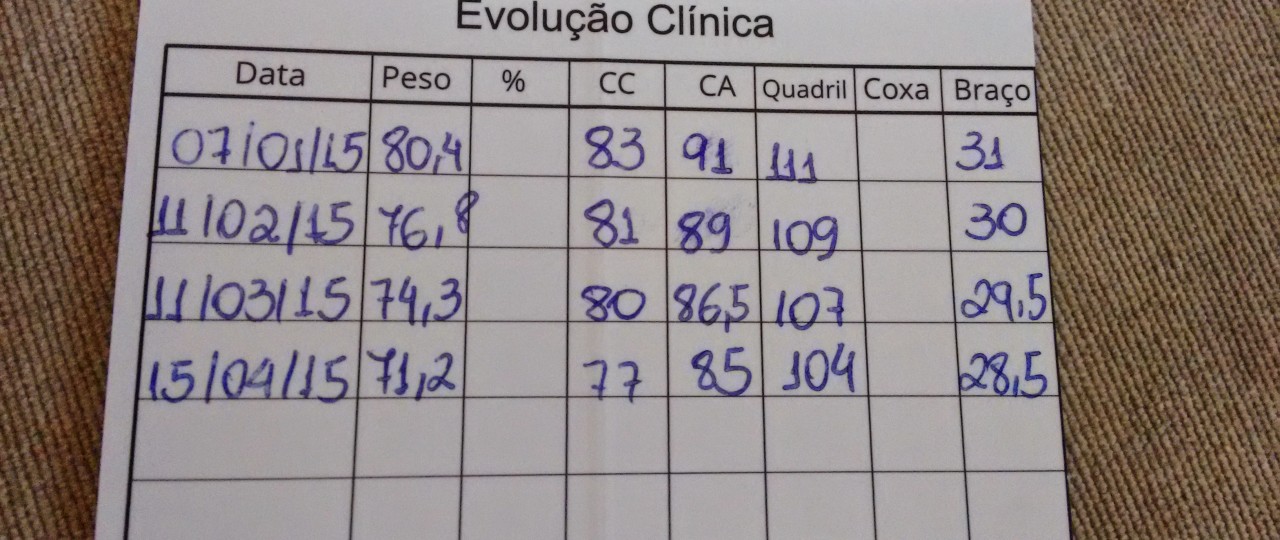 Evolução Clínica
Data Peso % CC CA Quadril Coxa Braço
07/01/15 80,4 83 91 111 31
11/02/15 76,8 81 89 109 30
11/03/15 74,3 80 86,5 107 29,5
15/04/15 71,2 77 85 104 28,5